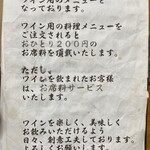 ワイン用のメニューと
なっております。
ワイン用の料理メニューを
ご注文されると
おひとり200円の
お席料を頂戴いたします。
ただし、
ワインを飲まれたお客様
は、お席料サービス
いたします。
ワインを楽しく、美味しく
お飲みいただけるよう
日々、創意工夫しております。
よろしくお願いします。